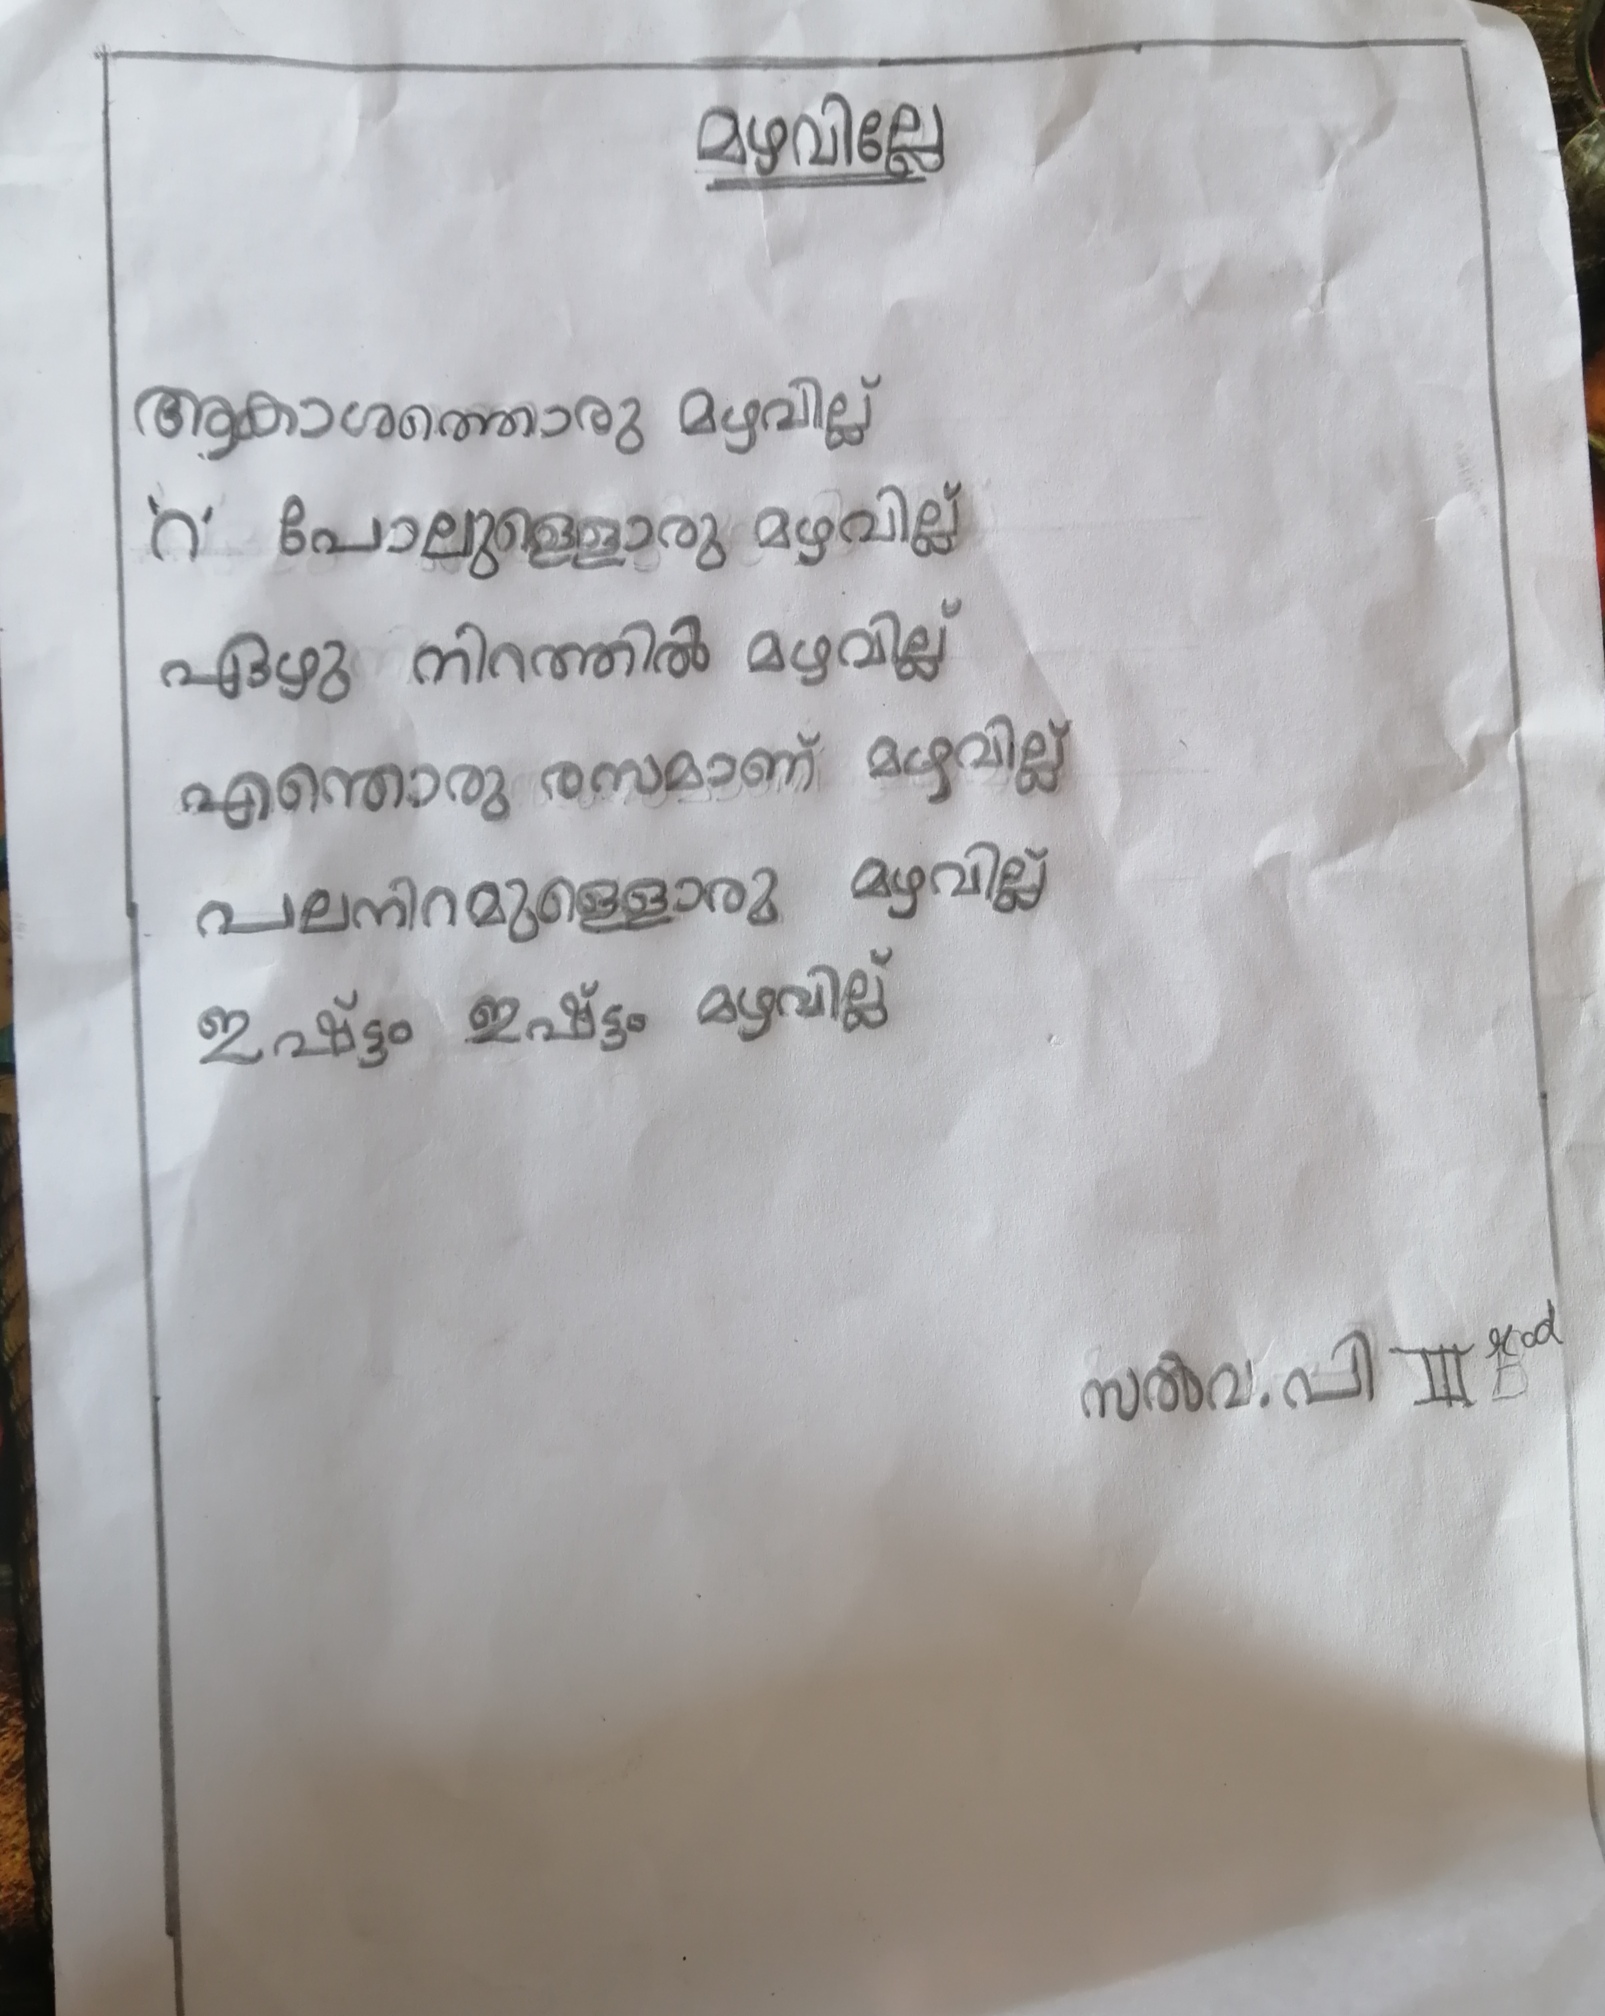 മഴവില്ലേ
ആകാശത്തൊരു മഴവില്ല്
'റ' പോലുള്ളൊരു മഴവില്ല്
ഏഴു നിറത്തിൽ മഴവില്ല്
എന്തൊരു രസമാണ് മഴവില്ല്
പലനിറമുള്ളൊരു മഴവില്ല്
ഇഷ്ട്ടം ഇഷ്ട്ടം മഴവില്ല്
സൽവ.പി III B